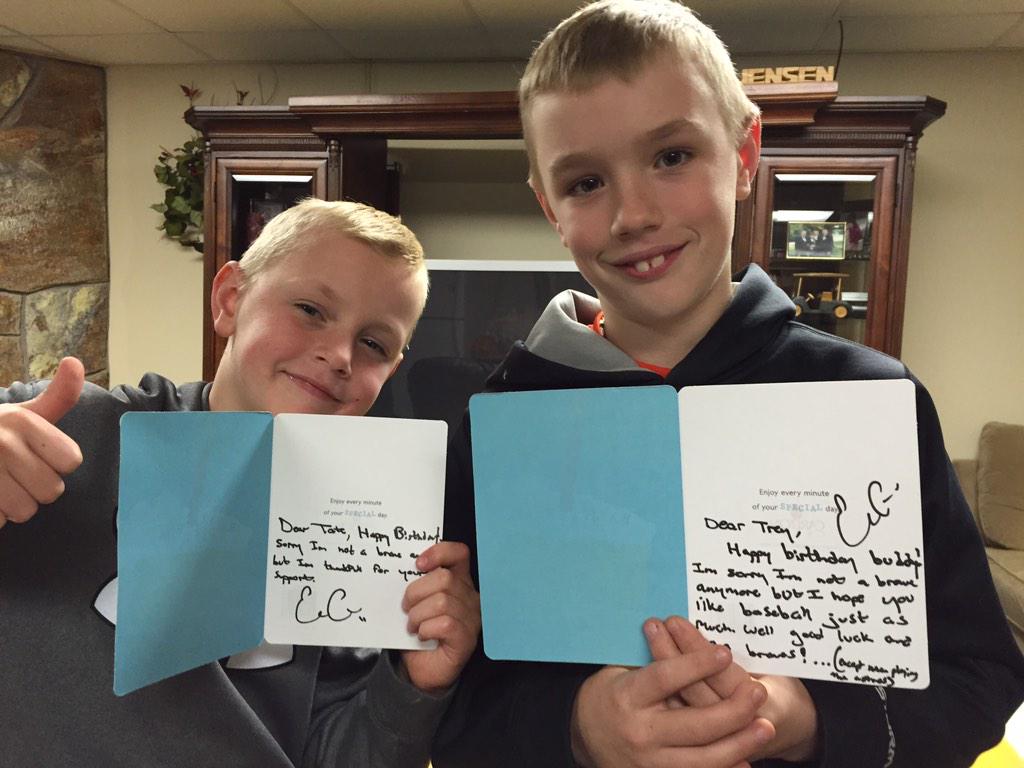 JENSEN
Enjoy every minute
of your SPECIAL day
Dear Tate, Happy Birthday!
Sorry Im not a brave
but Im thankful for your
support.
Enjoy every minute
of your SPECIAL day
Dear Trey,
Happy birthday buddy!
Im sorry Im not a brave
anymore but I hope you
like baseball just as
much. Well good luck and
braves!...(except when playing
the astros)